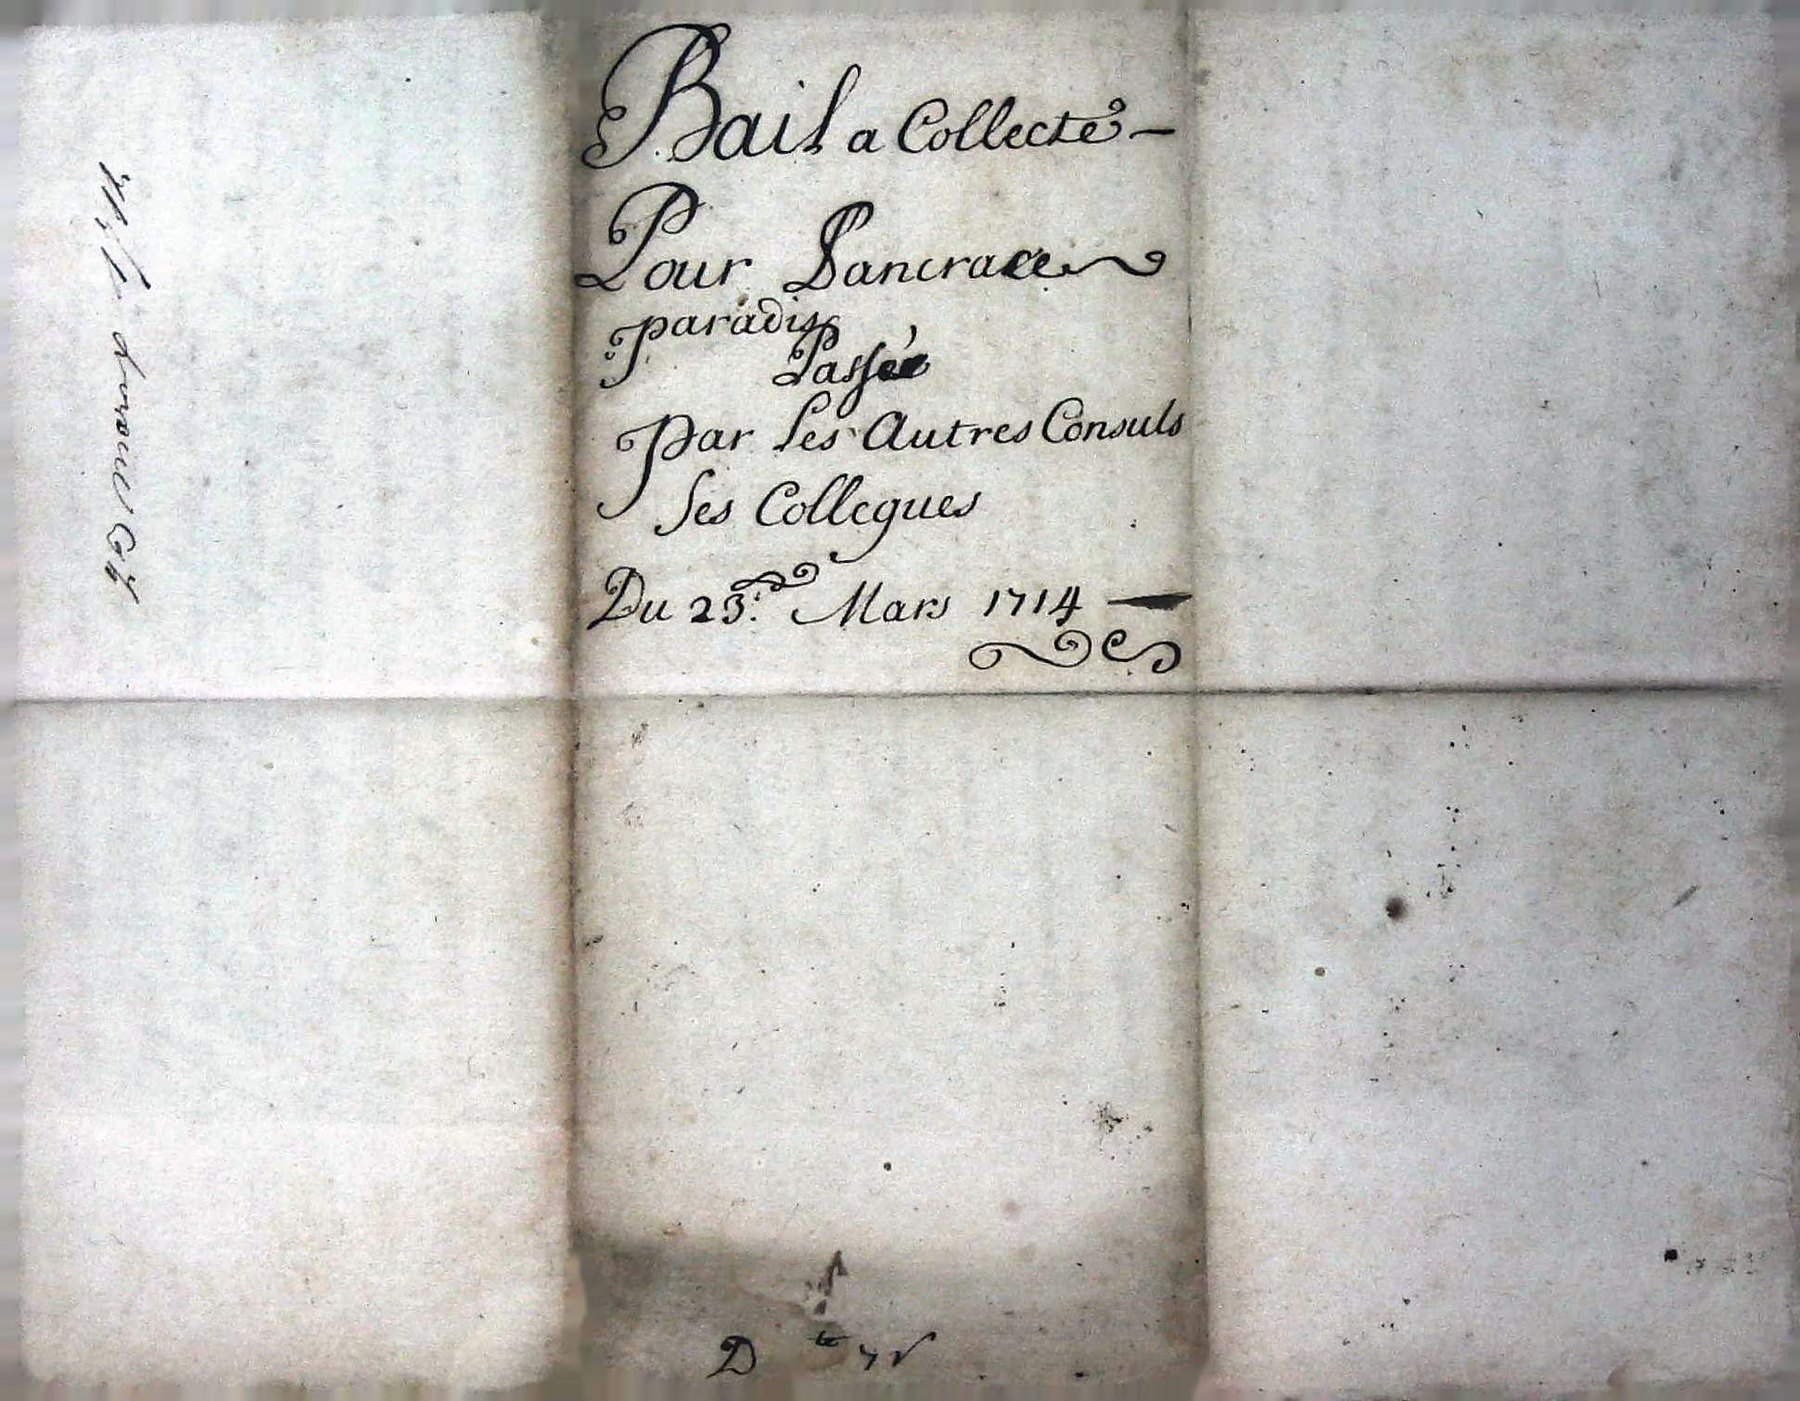 Bail a Collecte
Pour Pancrace
paradis
Passée
Par Les Autres Consuls
Ses Collegues
Du 23. Mars 1714
D